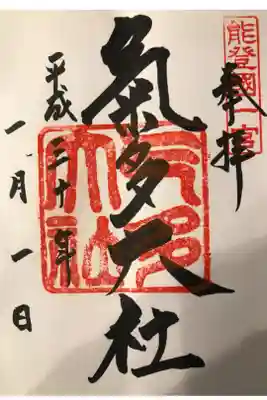 能登國一宮
奉拝
氣多大社
平成三十年
一月一日